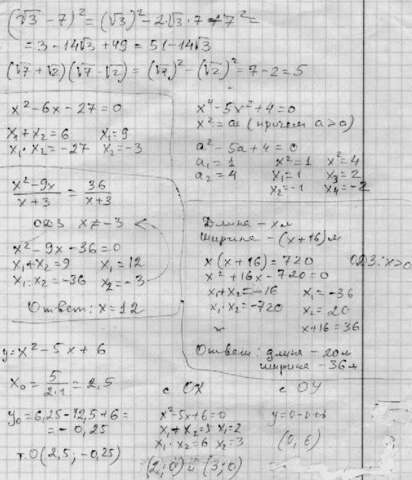 (√3 - 7)² = (√3)² - 2·√3·7 + 7² =
= 3 - 14√3 + 49 = 51 - 14√3
(√7 + √2)(√7 - √2) = (√7)² - (√2)² = 7 - 2 = 5
x² - 6x - 27 = 0
x₁ + x₂ = 6 x₁ = 9
x₁ · x₂ = -27 x₂ = -3
x⁴ - 5x² + 4 = 0
x² = a (причем a > 0)
a² - 5a + 4 = 0
a₁ = 1 x² = 1 x² = 4
a₂ = 4 x₁ = 1 x₃ = 2
x₂ = -1 x₄ = -2
x² - 9x / x + 3 = 36 / x + 3
ОДЗ x ≠ -3
x² - 9x - 36 = 0
x₁ + x₂ = 9 x₁ = 12
x₁ · x₂ = -36 x₂ = -3
Ответ: x = 12
Длина - x м
Ширина - (x + 16) м
x(x + 16) = 720 ОДЗ: x > 0
x² + 16x - 720 = 0
x₁ + x₂ = -16 x₁ = -36
x₁ · x₂ = -720 x₂ = 20
x + 16 = 36
Ответ: длина - 20м
ширина - 36м
y = x² - 5x + 6
x₀ = 5 / 2·1 = 2,5
y₀ = 6,25 - 12,5 + 6 =
= -0,25
т. O (2,5; -0,25)
с OX
x² - 5x + 6 = 0
x₁ + x₂ = 5 x₁ = 2
x₁ · x₂ = 6 x₂ = 3
(2; 0) и (3; 0)
с OY
y = 0 - 0 + 6
(0; 6)